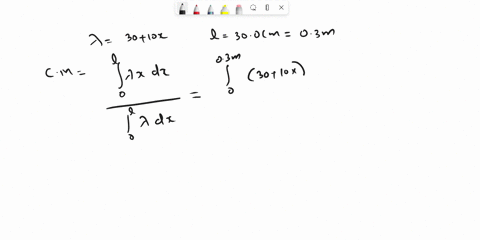 λ = 30+10x    l = 30.0cm = 0.3m
C.M = ∫₀^l λx dx / ∫₀^l λ dx = ∫₀^0.3m (30+10x)